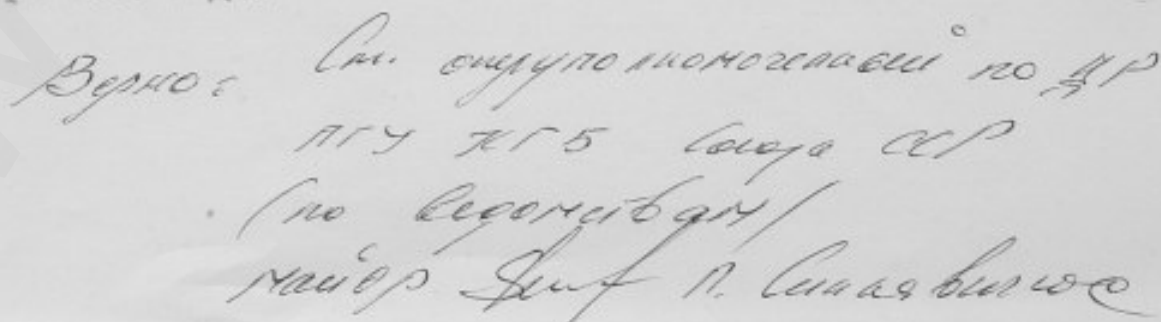 Верно: Ст. оперуполномоченный по ДР
ПГУ КГБ Союза ССР
(по ведомствам)
майор П. Синкявичюс